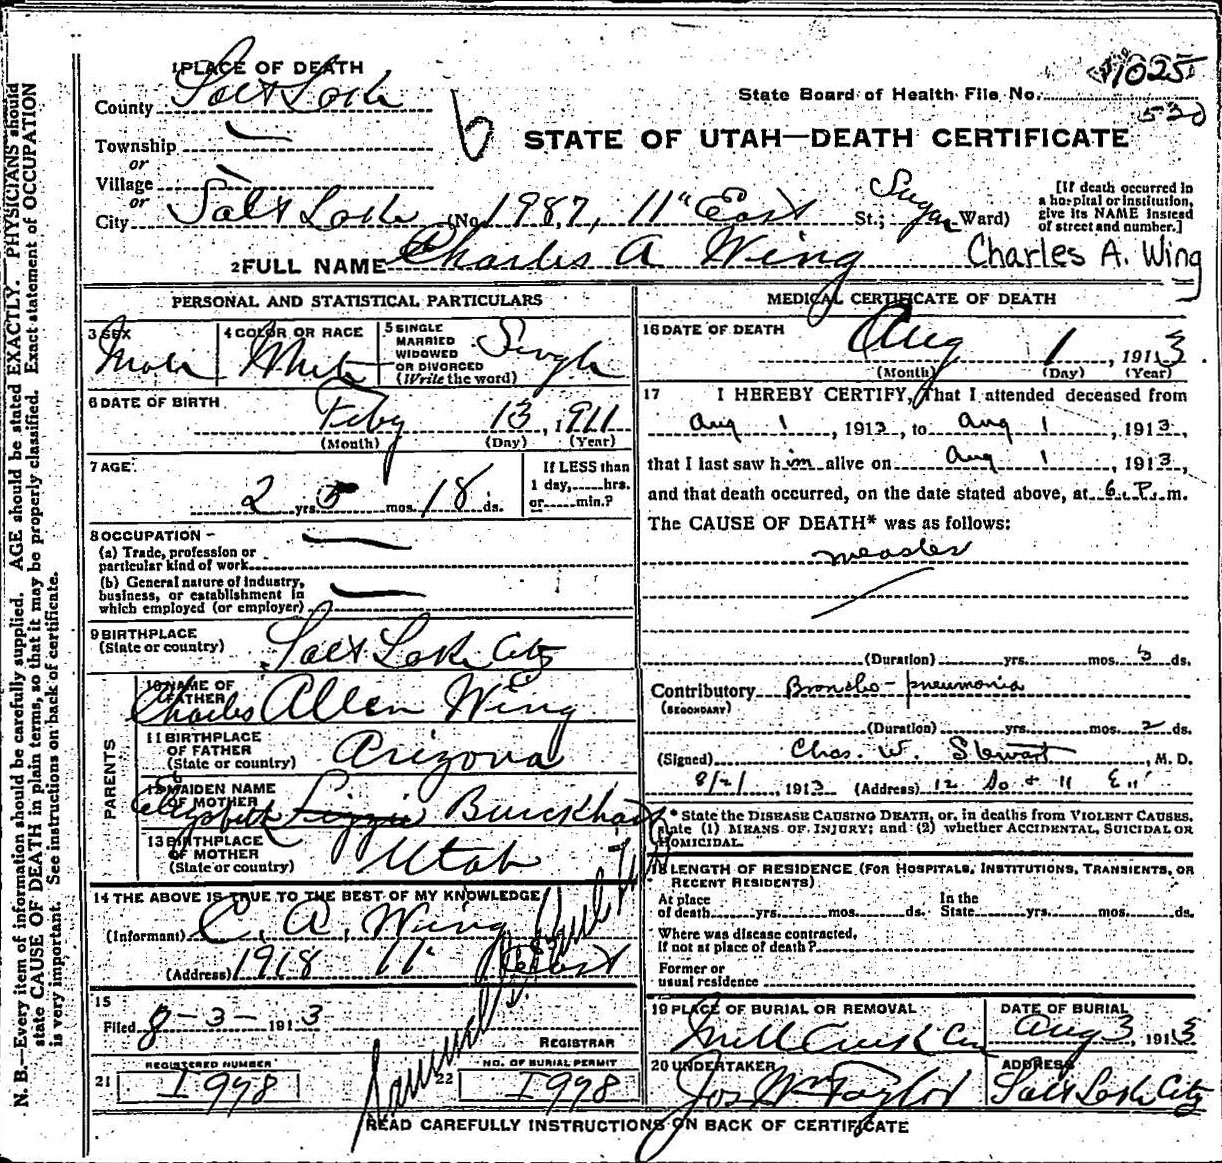 1 PLACE OF DEATH
County Salt Lake
Township
or
Village
or
City Salt Lake (No. 1987, 11" East St.; Sugar Ward)
State Board of Health File No. 1025
530
6
STATE OF UTAH—DEATH CERTIFICATE
[If death occurred in
a hospital or institution,
give its NAME instead
of street and number.]
2 FULL NAME Charles A Wing Charles A. Wing
PERSONAL AND STATISTICAL PARTICULARS
3 SEX
Male
4 COLOR OR RACE
White
5 SINGLE
MARRIED
WIDOWED
OR DIVORCED
(Write the word)
Single
6 DATE OF BIRTH
Feby 13, 1911
(Month) (Day) (Year)
7 AGE
2 yrs. 5 mos. 18 ds.
If LESS than
1 day, hrs.
or min.?
8 OCCUPATION
(a) Trade, profession or
particular kind of work
(b) General nature of industry,
business, or establishment in
which employed (or employer)
9 BIRTHPLACE
(State or country)
Salt Lake City
PARENTS
10 NAME OF
FATHER
Charles Allen Wing
11 BIRTHPLACE
OF FATHER
(State or country)
Arizona
12 MAIDEN NAME
OF MOTHER
Elizabeth Lizzie Burckhardt
13 BIRTHPLACE
OF MOTHER
(State or country)
Utah
14 THE ABOVE IS TRUE TO THE BEST OF MY KNOWLEDGE
(Informant) C. A. Wing
(Address) 1918 11" East
15
Filed 8-3-1913
Samuel
REGISTRAR
REGISTERED NUMBER
21 1998
NO. OF BURIAL PERMIT
22 1998
MEDICAL CERTIFICATE OF DEATH
16 DATE OF DEATH
Aug 1, 1913
(Month) (Day) (Year)
17 I HEREBY CERTIFY, That I attended deceased from
Aug 1, 1913, to Aug 1, 1913,
that I last saw him alive on Aug 1, 1913,
and that death occurred, on the date stated above, at 6 P. m.
The CAUSE OF DEATH* was as follows:
measles
(Duration) yrs. mos. 5 ds.
Contributory Broncho-pneumonia
(SECONDARY)
(Duration) yrs. mos. 2 ds.
(Signed) Chas. W. Stewart, M. D.
8/2/, 1913 (Address) 12 So & 11 E
* State the DISEASE CAUSING DEATH, or, in deaths from VIOLENT CAUSES,
state (1) MEANS OF INJURY; and (2) whether ACCIDENTAL, SUICIDAL OR
HOMICIDAL.
18 LENGTH OF RESIDENCE (FOR HOSPITALS, INSTITUTIONS, TRANSIENTS, OR
RECENT RESIDENTS)
At place
of death yrs. mos. ds.
In the
State yrs. mos. ds.
Where was disease contracted,
If not at place of death?
Former or
usual residence
19 PLACE OF BURIAL OR REMOVAL
Mill Creek Cem
DATE OF BURIAL
Aug 3, 1913
20 UNDERTAKER
Jos Wm Taylor
ADDRESS
Salt Lake City
READ CAREFULLY INSTRUCTIONS ON BACK OF CERTIFICATE
N. B.—Every item of information should be carefully supplied. AGE should be stated EXACTLY. PHYSICIANS should
state CAUSE OF DEATH in plain terms, so that it may be properly classified. Exact statement of OCCUPATION
is very important. See instructions on back of certificate.